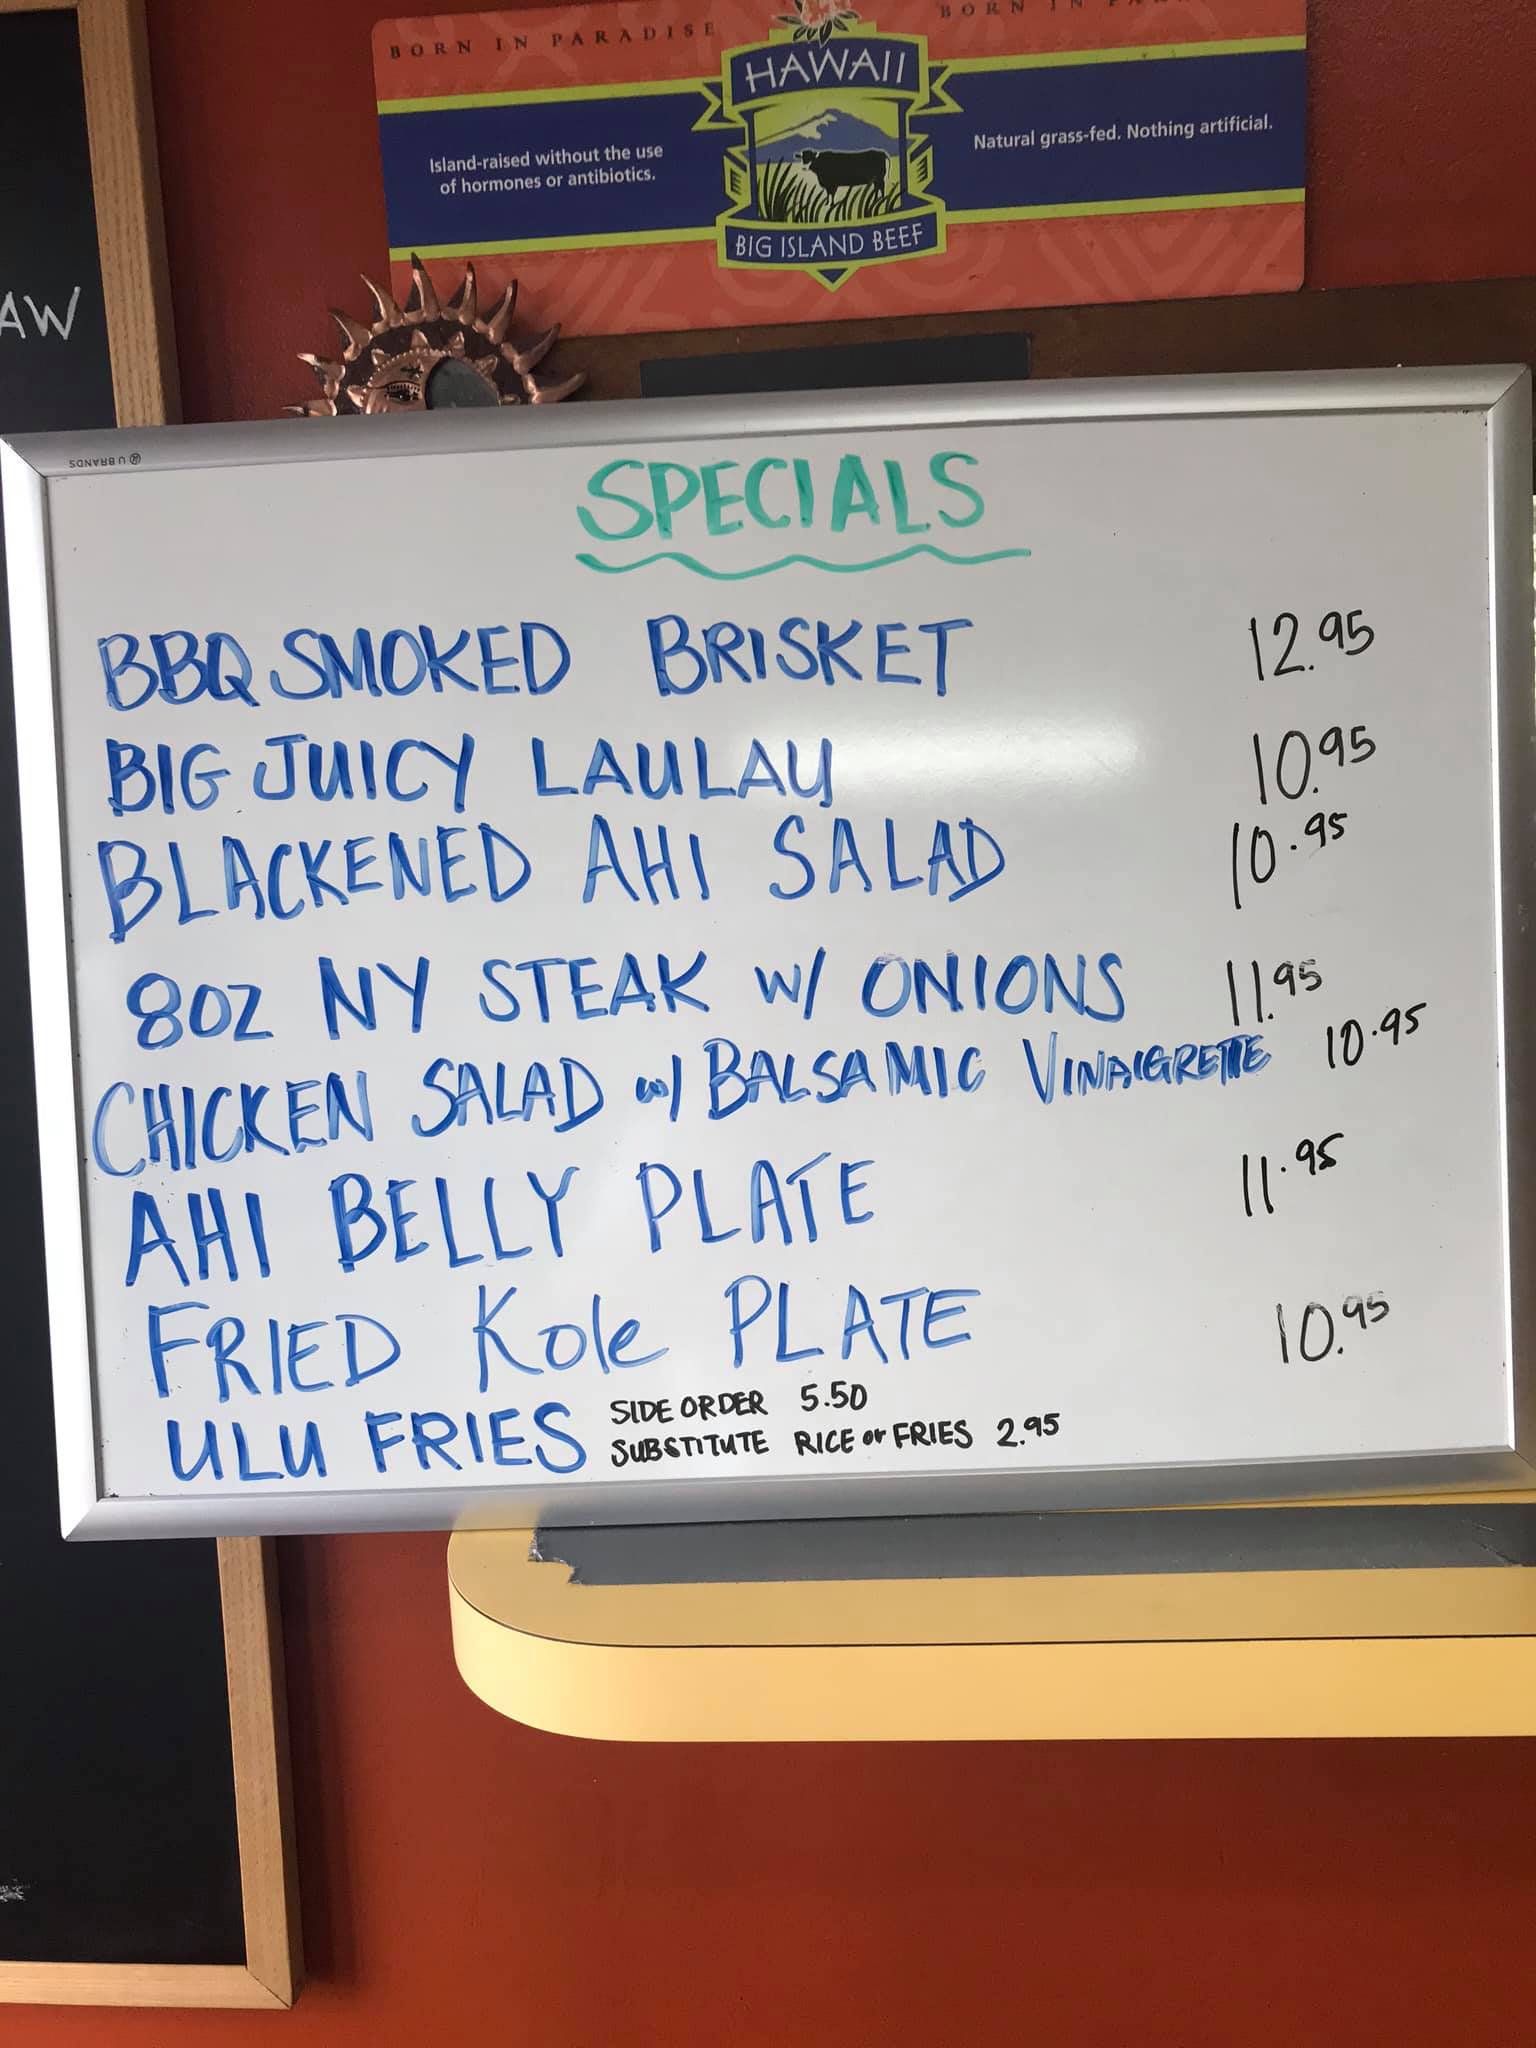 BORN IN PARADISE
BORN IN PA
HAWAII
Island-raised without the use
of hormones or antibiotics.
Natural grass-fed. Nothing artificial.
BIG ISLAND BEEF
AW
U BRANDS
SPECIALS
BBQ SMOKED BRISKET 12.95
BIG JUICY LAULAU 10.95
BLACKENED AHI SALAD 10.95
8OZ NY STEAK W/ ONIONS 11.95
CHICKEN SALAD W/ BALSAMIC VINAIGRETTE 10.95
AHI BELLY PLATE 11.95
FRIED Kole PLATE 10.95
ULU FRIES SIDE ORDER 5.50
SUBSTITUTE RICE or FRIES 2.95